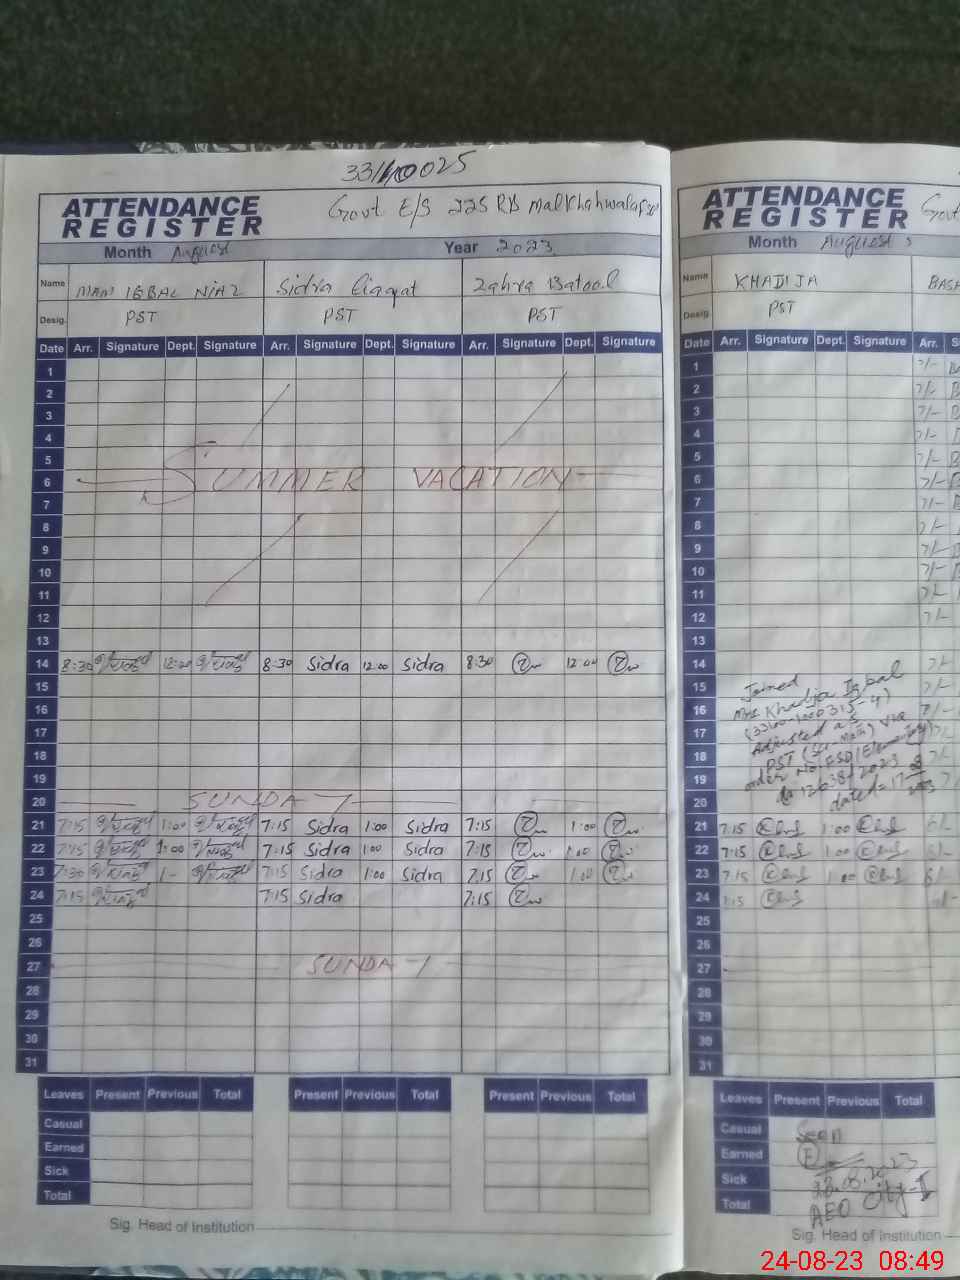 33110025
ATTENDANCE REGISTER
Govt E/S 225 RB Malkhanwala
Month August Year 2023
Name MAM IQBAL NIAZ Sidra Liaqat Zahra Batool
Desig. PST PST PST
Date Arr. Signature Dept. Signature Arr. Signature Dept. Signature Arr. Signature Dept. Signature
1
2
3
4
5
6 SUMMER VACATION
7
8
9
10
11
12
13
14 8:30 12:00 8:30 Sidra 12:00 Sidra 8:30 12:00
15
16
17
18
19
20 SUNDAY
21 7:15 1:00 7:15 Sidra 1:00 Sidra 7:15 1:00
22 7:15 1:00 7:15 Sidra 1:00 Sidra 7:15 1:00
23 7:30 1- 7:15 Sidra 1:00 Sidra 7:15 1:00
24 7:15 7:15 Sidra 7:15
25
26
27 SUNDAY
28
29
30
31
Leaves Present Previous Total Present Previous Total Present Previous Total
Casual
Earned
Sick
Total
Sig. Head of Institution
ATTENDANCE REGISTER
Govt
Month August
Name KHADIJA BASH
Desig. PST
Date Arr. Signature Dept. Signature Arr. Si
1 7/-
2 7/-
3 7/-
4 7/-
5 7/-
6 7/-
7 7/-
8 7/-
9 7/-
10 7/-
11 7/-
12 7/-
13
14 7/-
15 Joined
16 Mrs Khadija Iqbal
17 Adjusted as
18 PST (Sci-Math) vide
19 order No ESD/Elementary
20 dated = 17-8
21 7:15 1:00 6/-
22 7:15 1:00 6/-
23 7:15 1:00 6/-
24 7:15 6/-
25
26
27
28
29
30
31
Leaves Present Previous Total
Casual Seen
Earned
Sick 23.8.2023
Total AEO City-I
Sig. Head of Institution
24-08-23 08:49